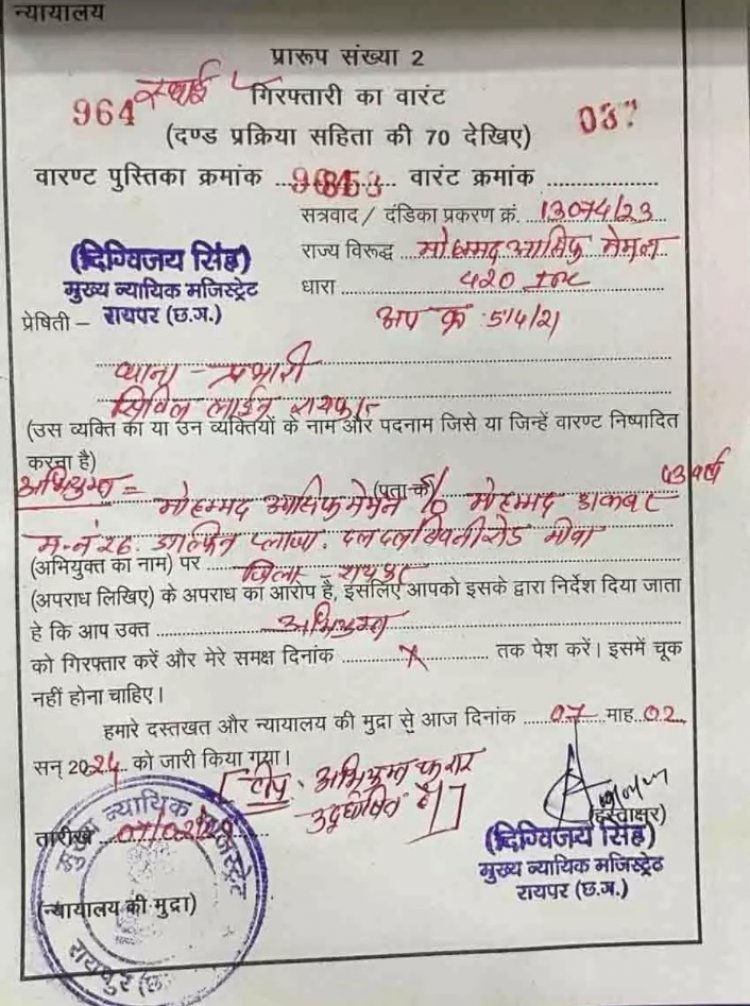 न्यायालय
प्रारूप संख्या 2
964 स्थाई गिरफ्तारी का वारंट
(दण्ड प्रक्रिया सहिता की 70 देखिए)
वारण्ट पुस्तिका क्रमांक वारंट क्रमांक
सत्रवाद / दंडिका प्रकरण क्रं. 13074/23
(दिग्विजय सिंह)
मुख्य न्यायिक मजिस्ट्रेट
रायपर (छ.ग.)
राज्य विरूद्ध मोहम्मद आसिफ मेमन
धारा 420 IPC
प्रेषिती –
अप क्र 514/21
थाना - प्रभारी
सिविल लाईन रायपुर
(उस व्यक्ति का या उन व्यक्तियों के नाम और पदनाम जिसे या जिन्हें वारण्ट निष्पादित
करना है)
अभियुक्त = मोहम्मद आसिफ मेमन (पता के) S/o मोहम्मद अकबर 43 वर्ष
म.नं 26. प्लाजा. रोड मोवा
(अभियुक्त का नाम) पर जिला - रायपुर
(अपराध लिखिए) के अपराध का आरोप है, इसलिए आपको इसके द्वारा निर्देश दिया जाता
हे कि आप उक्त अभियुक्त
को गिरफ्तार करें और मेरे समक्ष दिनांक X तक पेश करें। इसमें चूक
नहीं होना चाहिए।
हमारे दस्तखत और न्यायालय की मुद्रा से आज दिनांक 07 माह 02
सन् 2024 को जारी किया गया।
[टीप. अभियुक्त फरार
उद्घोषित है]
तारीख 07/02/24
(हस्ताक्षर)
(दिग्विजय सिंह)
मुख्य न्यायिक मजिस्ट्रेट
रायपर (छ.ग.)
(न्यायालय की मुद्रा)
मुख्य न्यायिक मजिस्ट्रेट
रायपुर (छ.